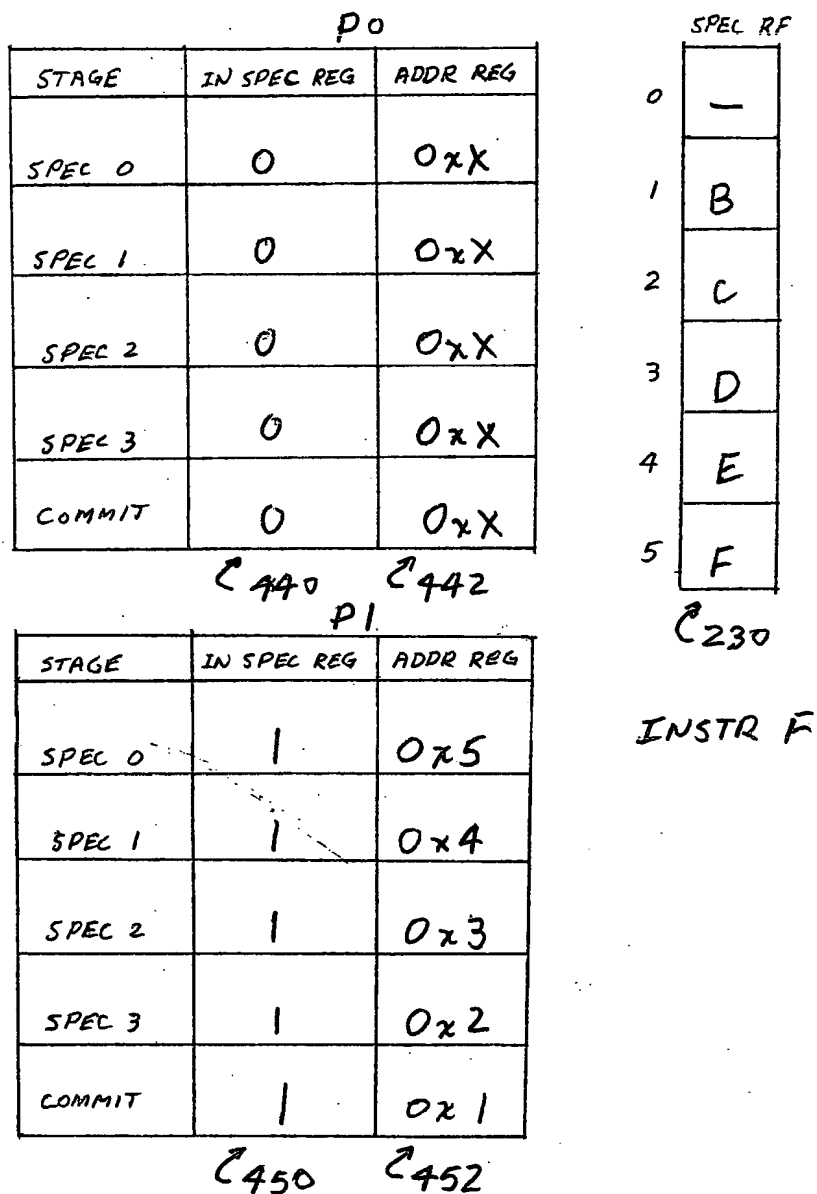 P0
STAGE IN SPEC REG ADDR REG
SPEC 0 0 0xX
SPEC 1 0 0xX
SPEC 2 0 0xX
SPEC 3 0 0xX
COMMIT 0 0xX
440 442
SPEC RF
0 —
1 B
2 C
3 D
4 E
5 F
230
INSTR F
P1
STAGE IN SPEC REG ADDR REG
SPEC 0 1 0x5
SPEC 1 1 0x4
SPEC 2 1 0x3
SPEC 3 1 0x2
COMMIT 1 0x1
450 452